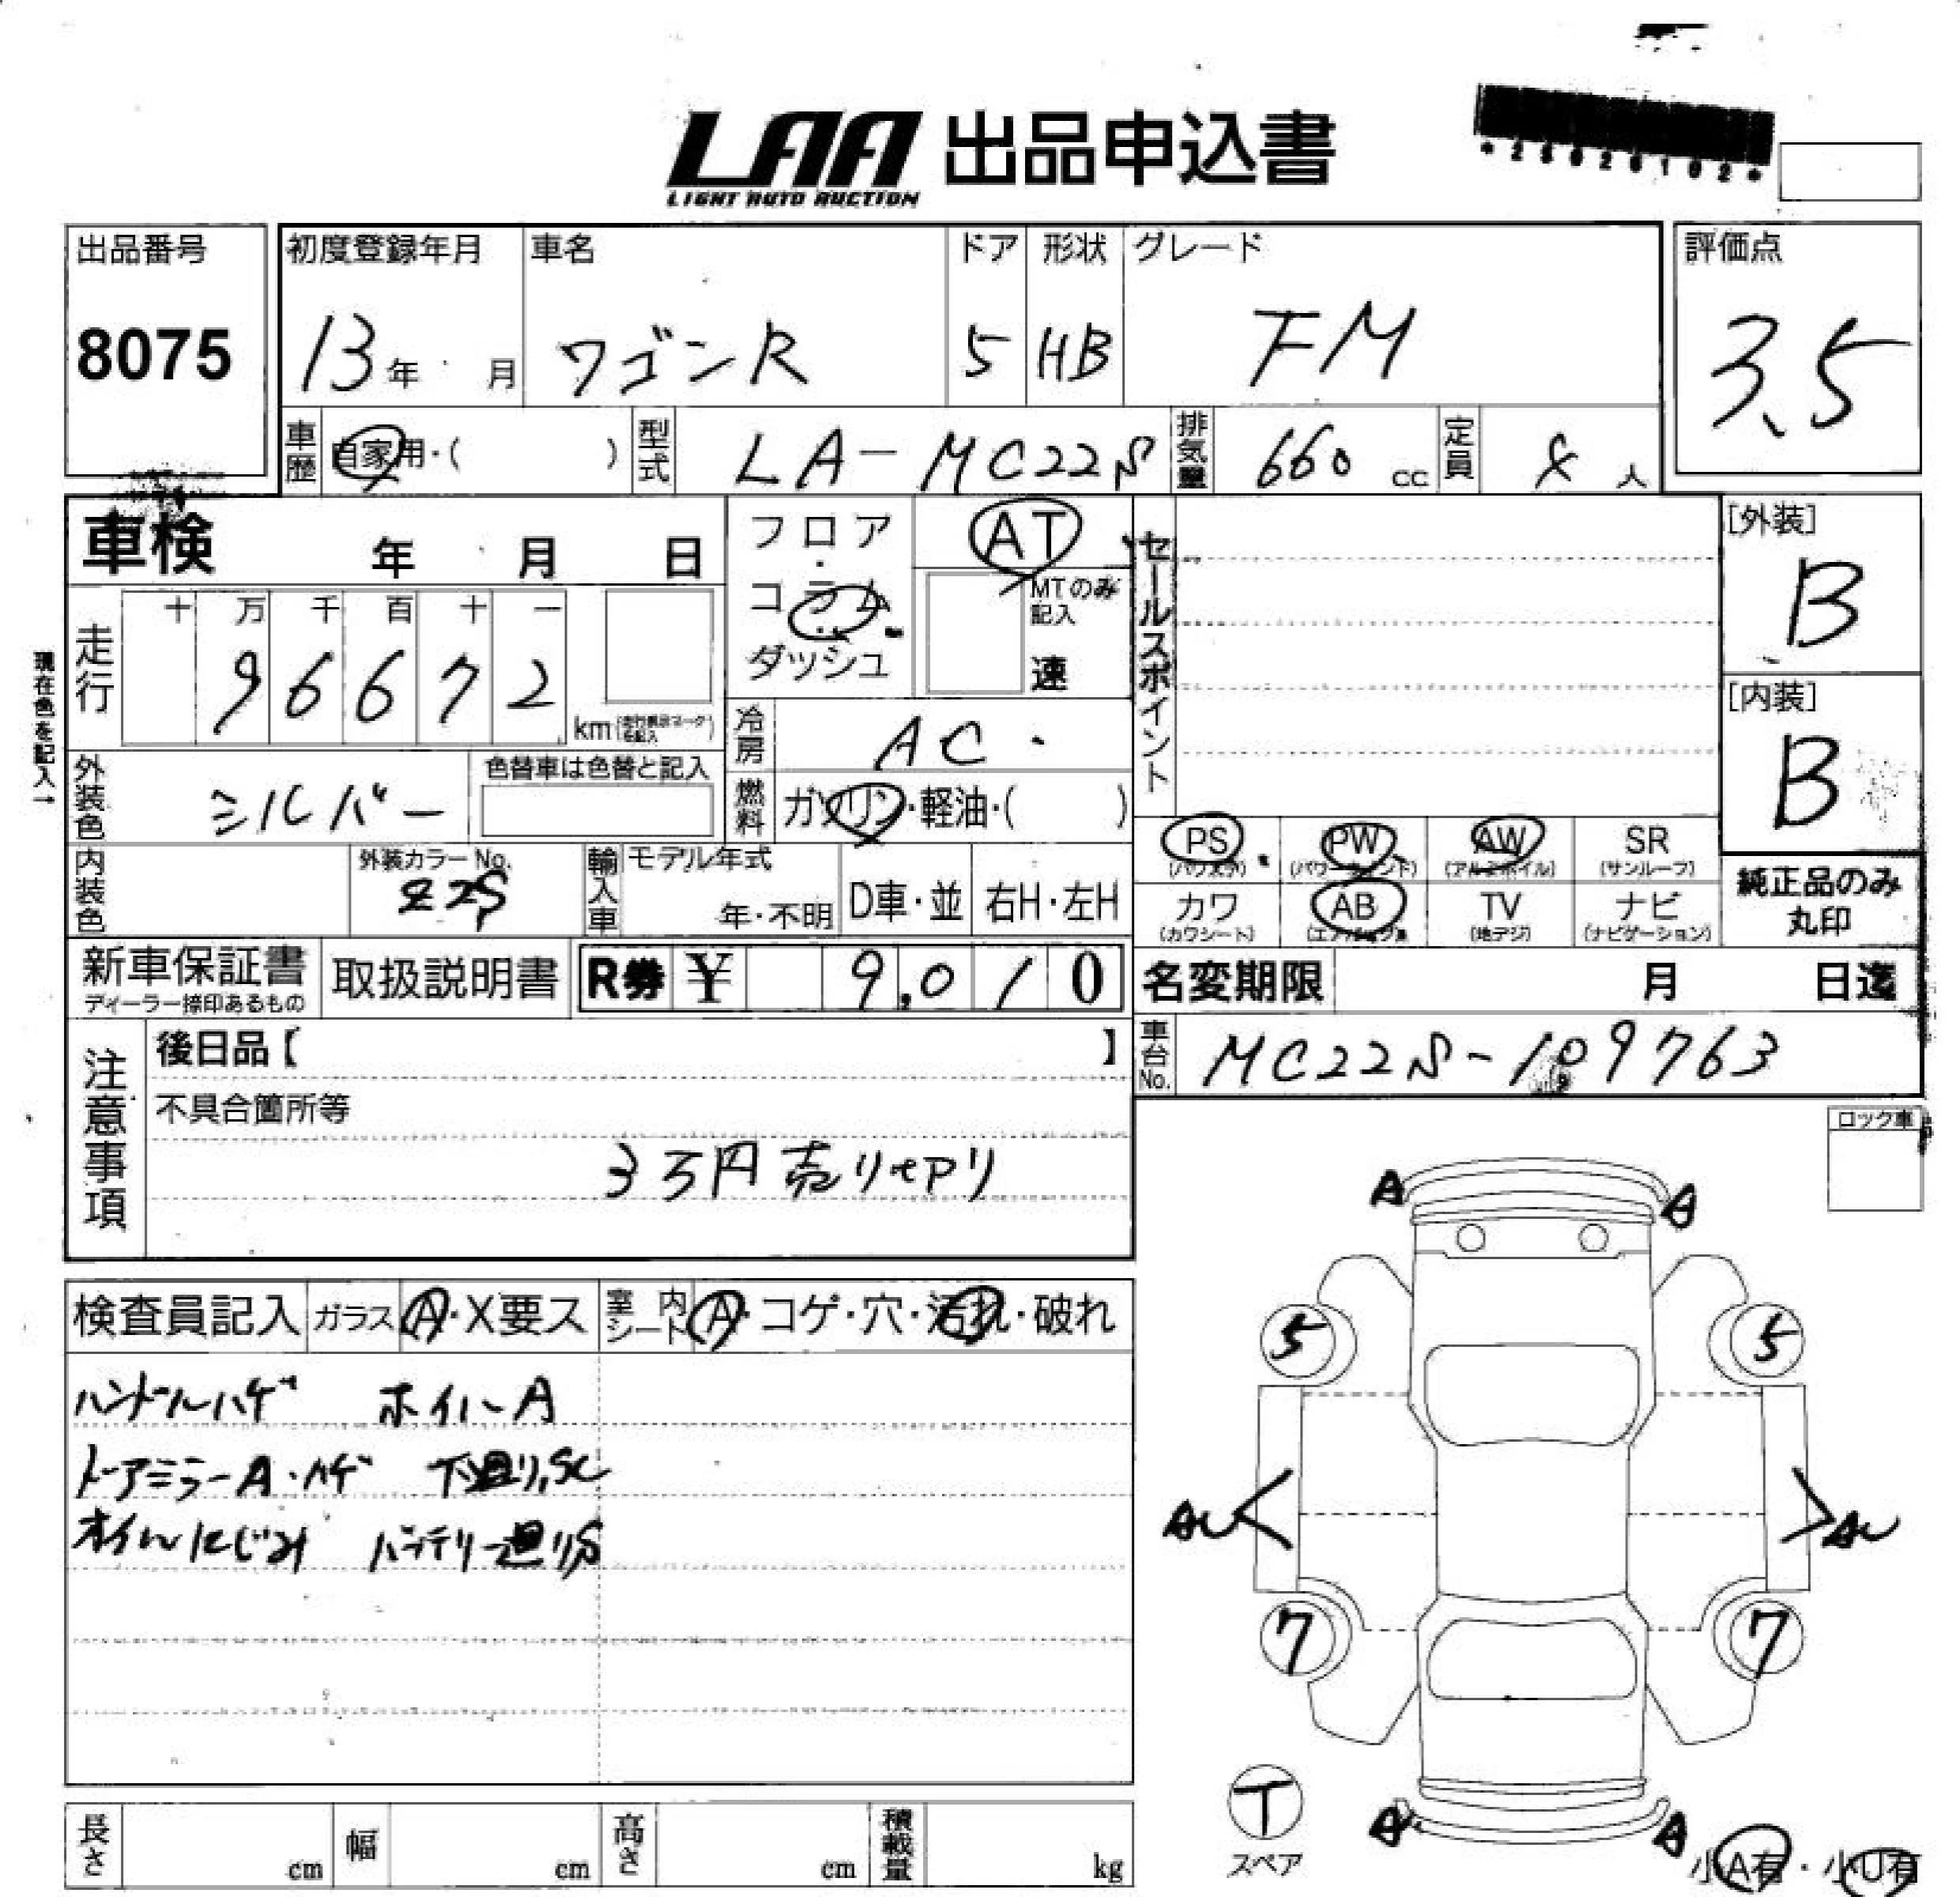 LAA 出品申込書
LIGHT AUTO AUCTION
*25020102*
出品番号 初度登録年月 車名 ドア 形状 グレード 評価点
8075 13年 月 ワゴンR 5 HB FM 3.5
車歴 自家用・( ) 型式 LA-MC22S 排気量 660 cc 定員 4 人
車検 年 月 日 フロア・コラム・ダッシュ AT
MTのみ記入 速
セールスポイント
[外装]
B
[内装]
B
現在色を記入→
走行 十 万 千 百 十 一
96672 km
冷房 AC
外装色 シルバー 色替車は色替と記入
燃料 ガソリン・軽油・( )
内装色 外装カラーNo. Z2S 輸入車 モデル年式 年・不明 D車・並 右H・左H
PS PW AW SR
(パワステ) (パワーウィンド) (アルミホイル) (サンルーフ)
カワ AB TV ナビ
(カワシート) (エアバッグ) (地デジ) (ナビゲーション)
純正品のみ
丸印
新車保証書 取扱説明書 R券 ¥ 9,010
ディーラー捺印あるもの
名変期限 月 日迄
車台No. MC22S-109763
注意事項
後日品【 】
不具合箇所等
3万円売り切り
ロック車
検査員記入 ガラス A・X要ス 室内シート A・コゲ・穴・汚れ・破れ
ハンドルハゲ ホイルA
ドアミラーA・ハゲ 下廻り,SC
オイルにじみ バッテリー廻りS
A A
5 5
AU AU
7 7
T
スペア
A A
小A有・小U有
長さ cm 幅 cm 高さ cm 積載量 kg